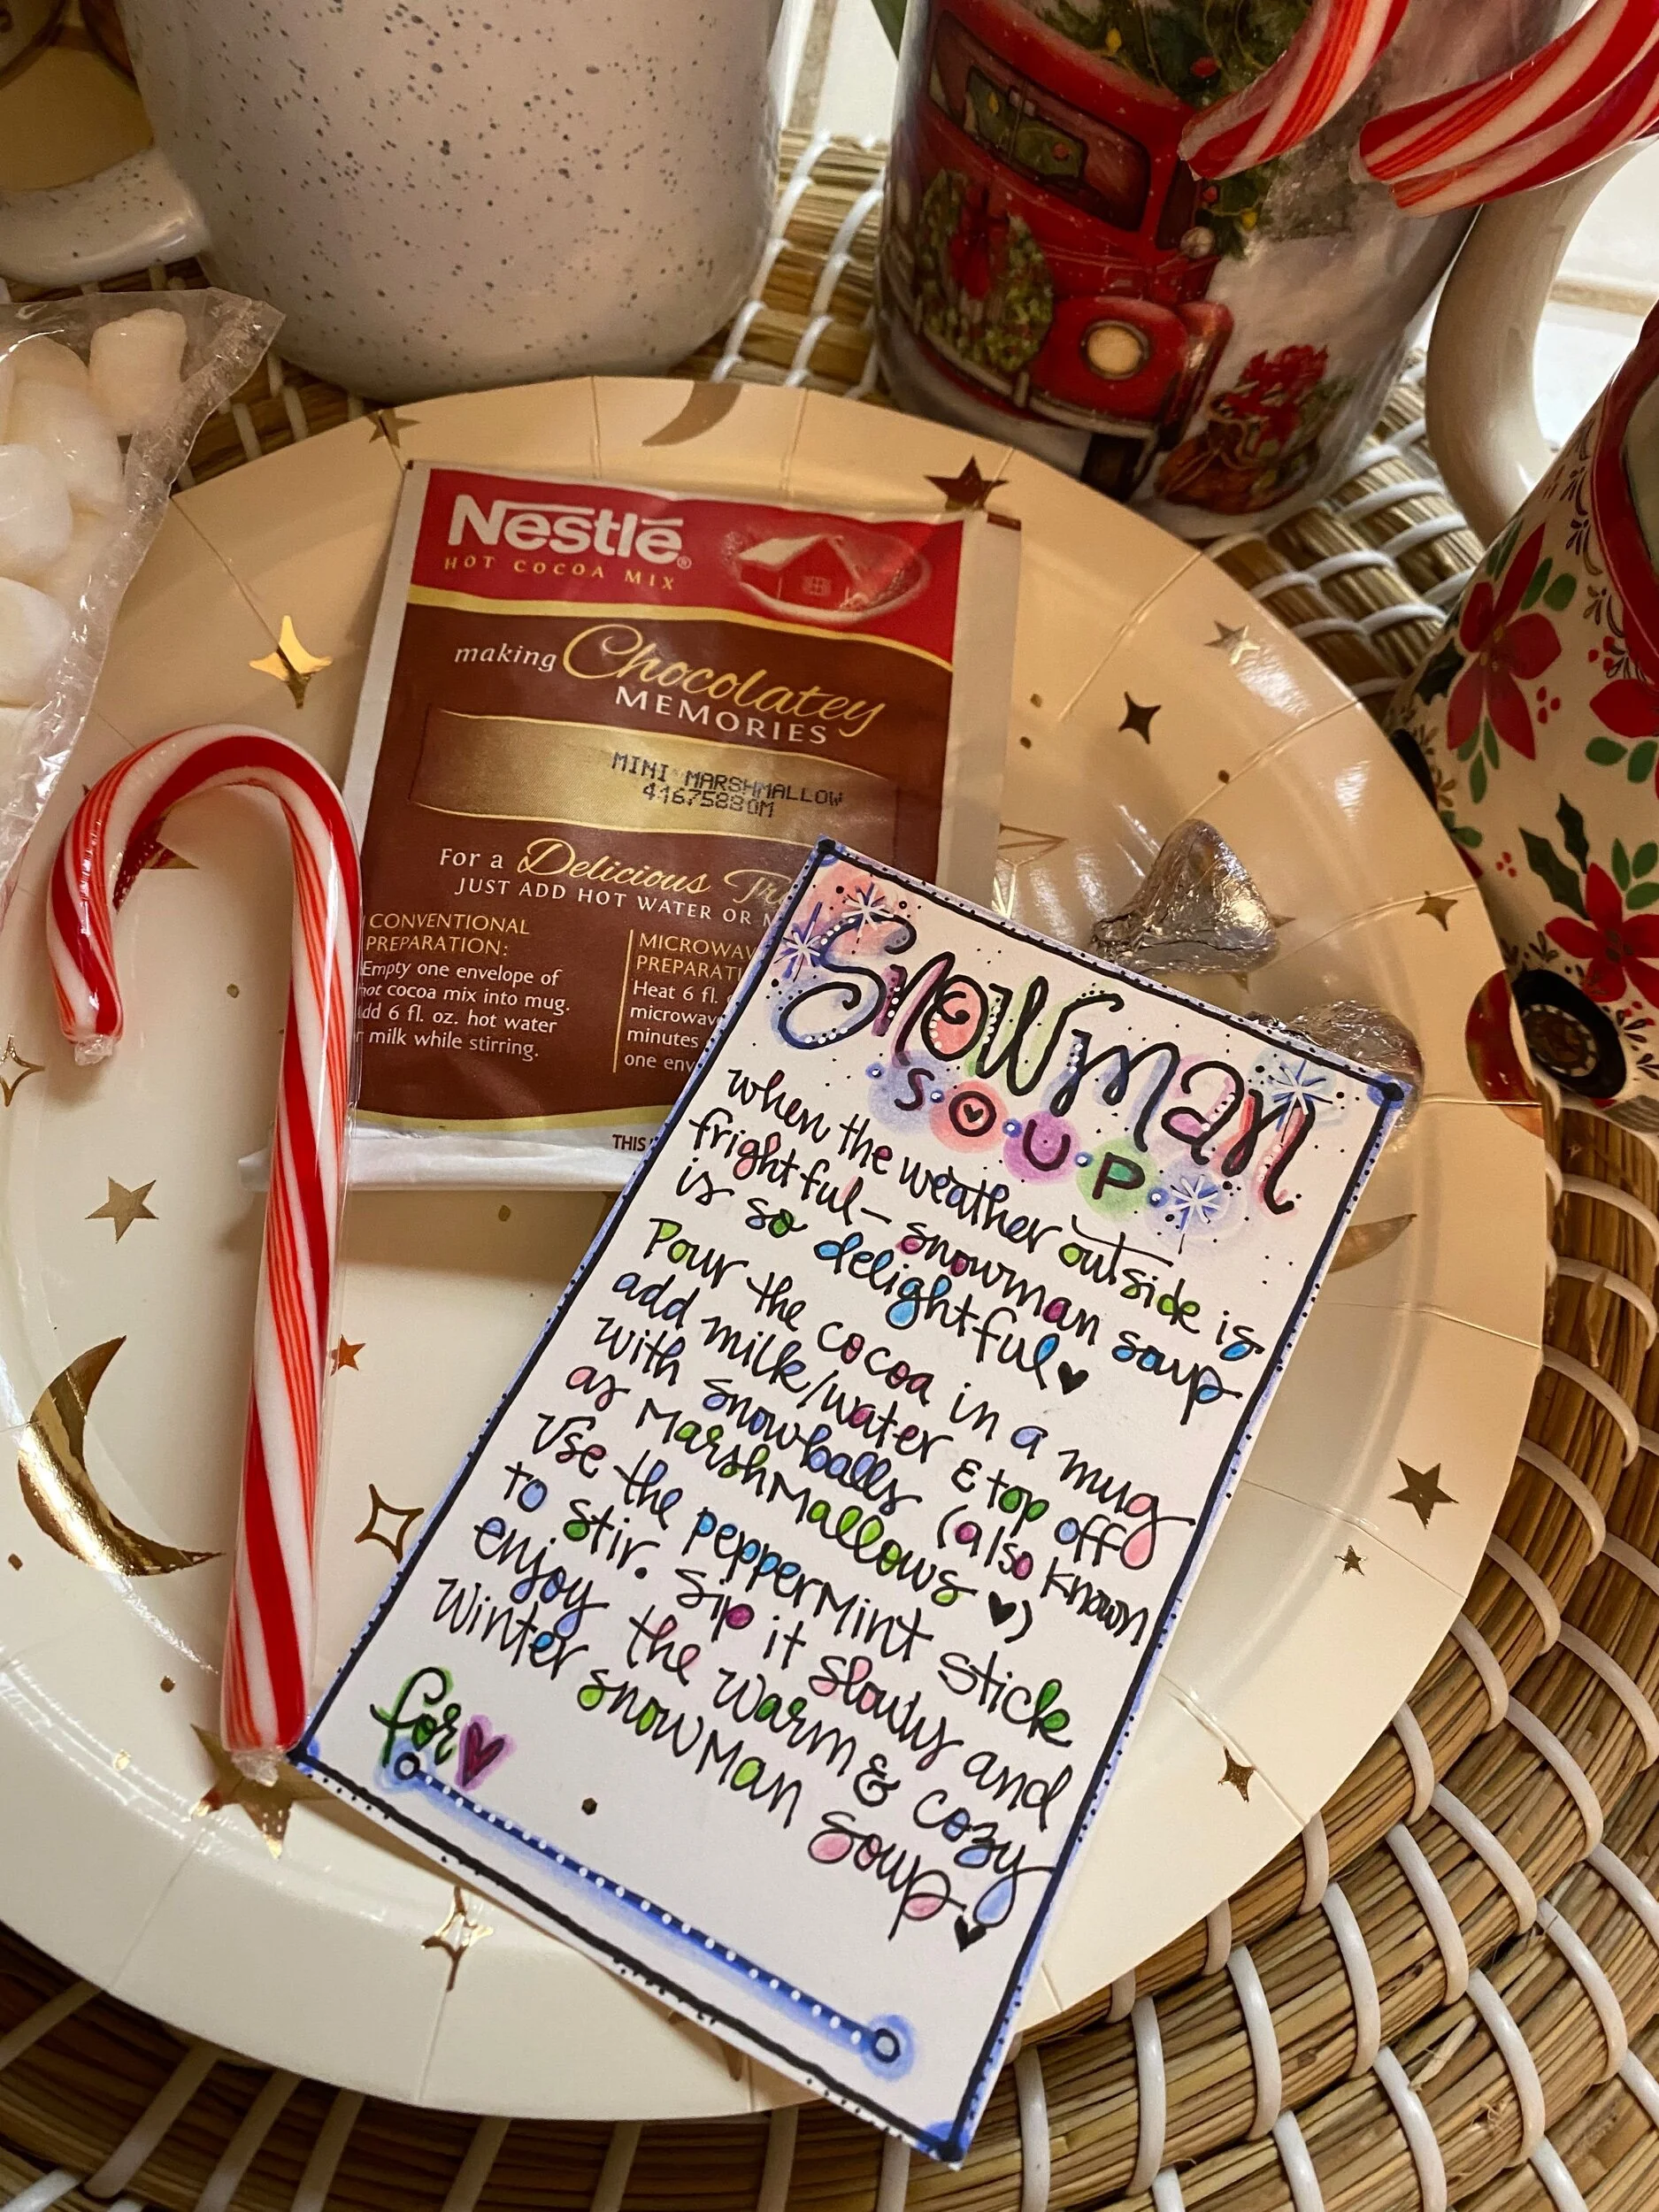 Nestlé®
HOT COCOA MIX
making Chocolatey
MEMORIES
MINI MARSHMALLOW
41675880M
For a Delicious
JUST ADD HOT WATER OR
CONVENTIONAL
PREPARATION:
Empty one envelope of
hot cocoa mix into mug.
6 fl. oz. hot water
milk while stirring.
Heat 6 fl.
minutes
one
THIS
Snowman
SOUP
when the weather outside is
frightful— snowman soup
is so delightful♥
Pour the cocoa in a mug
add milk/water & top off
with snowballs (also known
as Marshmallows ♥)
Use the pepperMint stick
to stir. Sip it slowly and
enjoy the warm & cozy
Winter snowMan soup♥
for♥